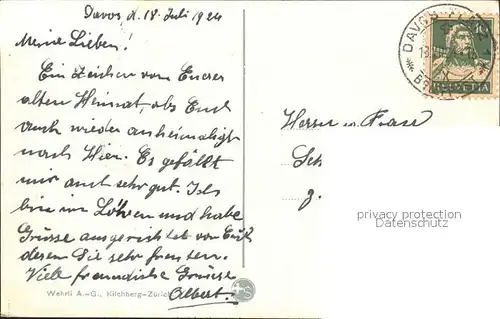 Davos d. 18. Juli 1924
Meine Lieben!
Ein Zeichen von Euerer
alten Heimat, obs Euch
auch wieder anheimaligt
nach Hier. Es gefällt
mir auch sehr gut. Ich
bin im Löhren und habe
Grüsse ausgerichtet von Euch
deren Sie sehr freuten.
Viele freundliche Grüsse
Albert.
Wehrli A.-G., Kilchberg-Zürich
DAVOS
HELVETIA
Herrn u. Frau
Sch
z.
privacy protection
Datenschutz